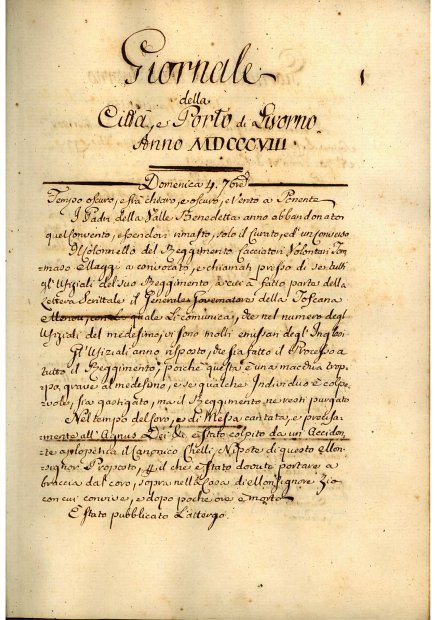 Giornale
1
della
Città, e Porto di Livorno
Anno MDCCCVIII
Domenica 4. 7bre
Tempo oscuro, e stà chiaro, e oscuro, e Vento a Ponente
I Padri della Valle Benedetta anno abbandonato
quel Convento, essendovi rimasto, solo il Curato, ed un Converso
Il Colonnello del Reggimento Cacciatori Volontari Tom-
maso a convocato, e chiamati presso di se tutti
gl'Ufiziali del suo Reggimento, a cui à fatto parte della
Lettera Scrittale il Generale Governatore della Toscana
Menou, con la quale Li comunica, che nel numero degl'
Ufiziali del medesimo, vi sono molti emissari degl'Inglesi
Gl'Ufiziali anno risposto, che sia fatto il Processo a
tutto il Reggimento, poichè questa è una macchia trop-
po, grave al medesimo, e se qualche Individuo è colpe-
vole, sia gastigato, ma il Reggimento ne resti purgato
Nel tempo del Coro, e di Messa cantata, e precisa-
mente all'Agnus Dei & è stato colpito da un Acciden-
te apopletica il Canonico Chelli, Nipote di questo Mon-
signor Proposto, il che è stato dovuto portare a
braccia dal Coro, sopra nella Casa di Monsignore Zio
con cui convive, e dopo poche ore è morto
E stato pubblicato L'attergo.